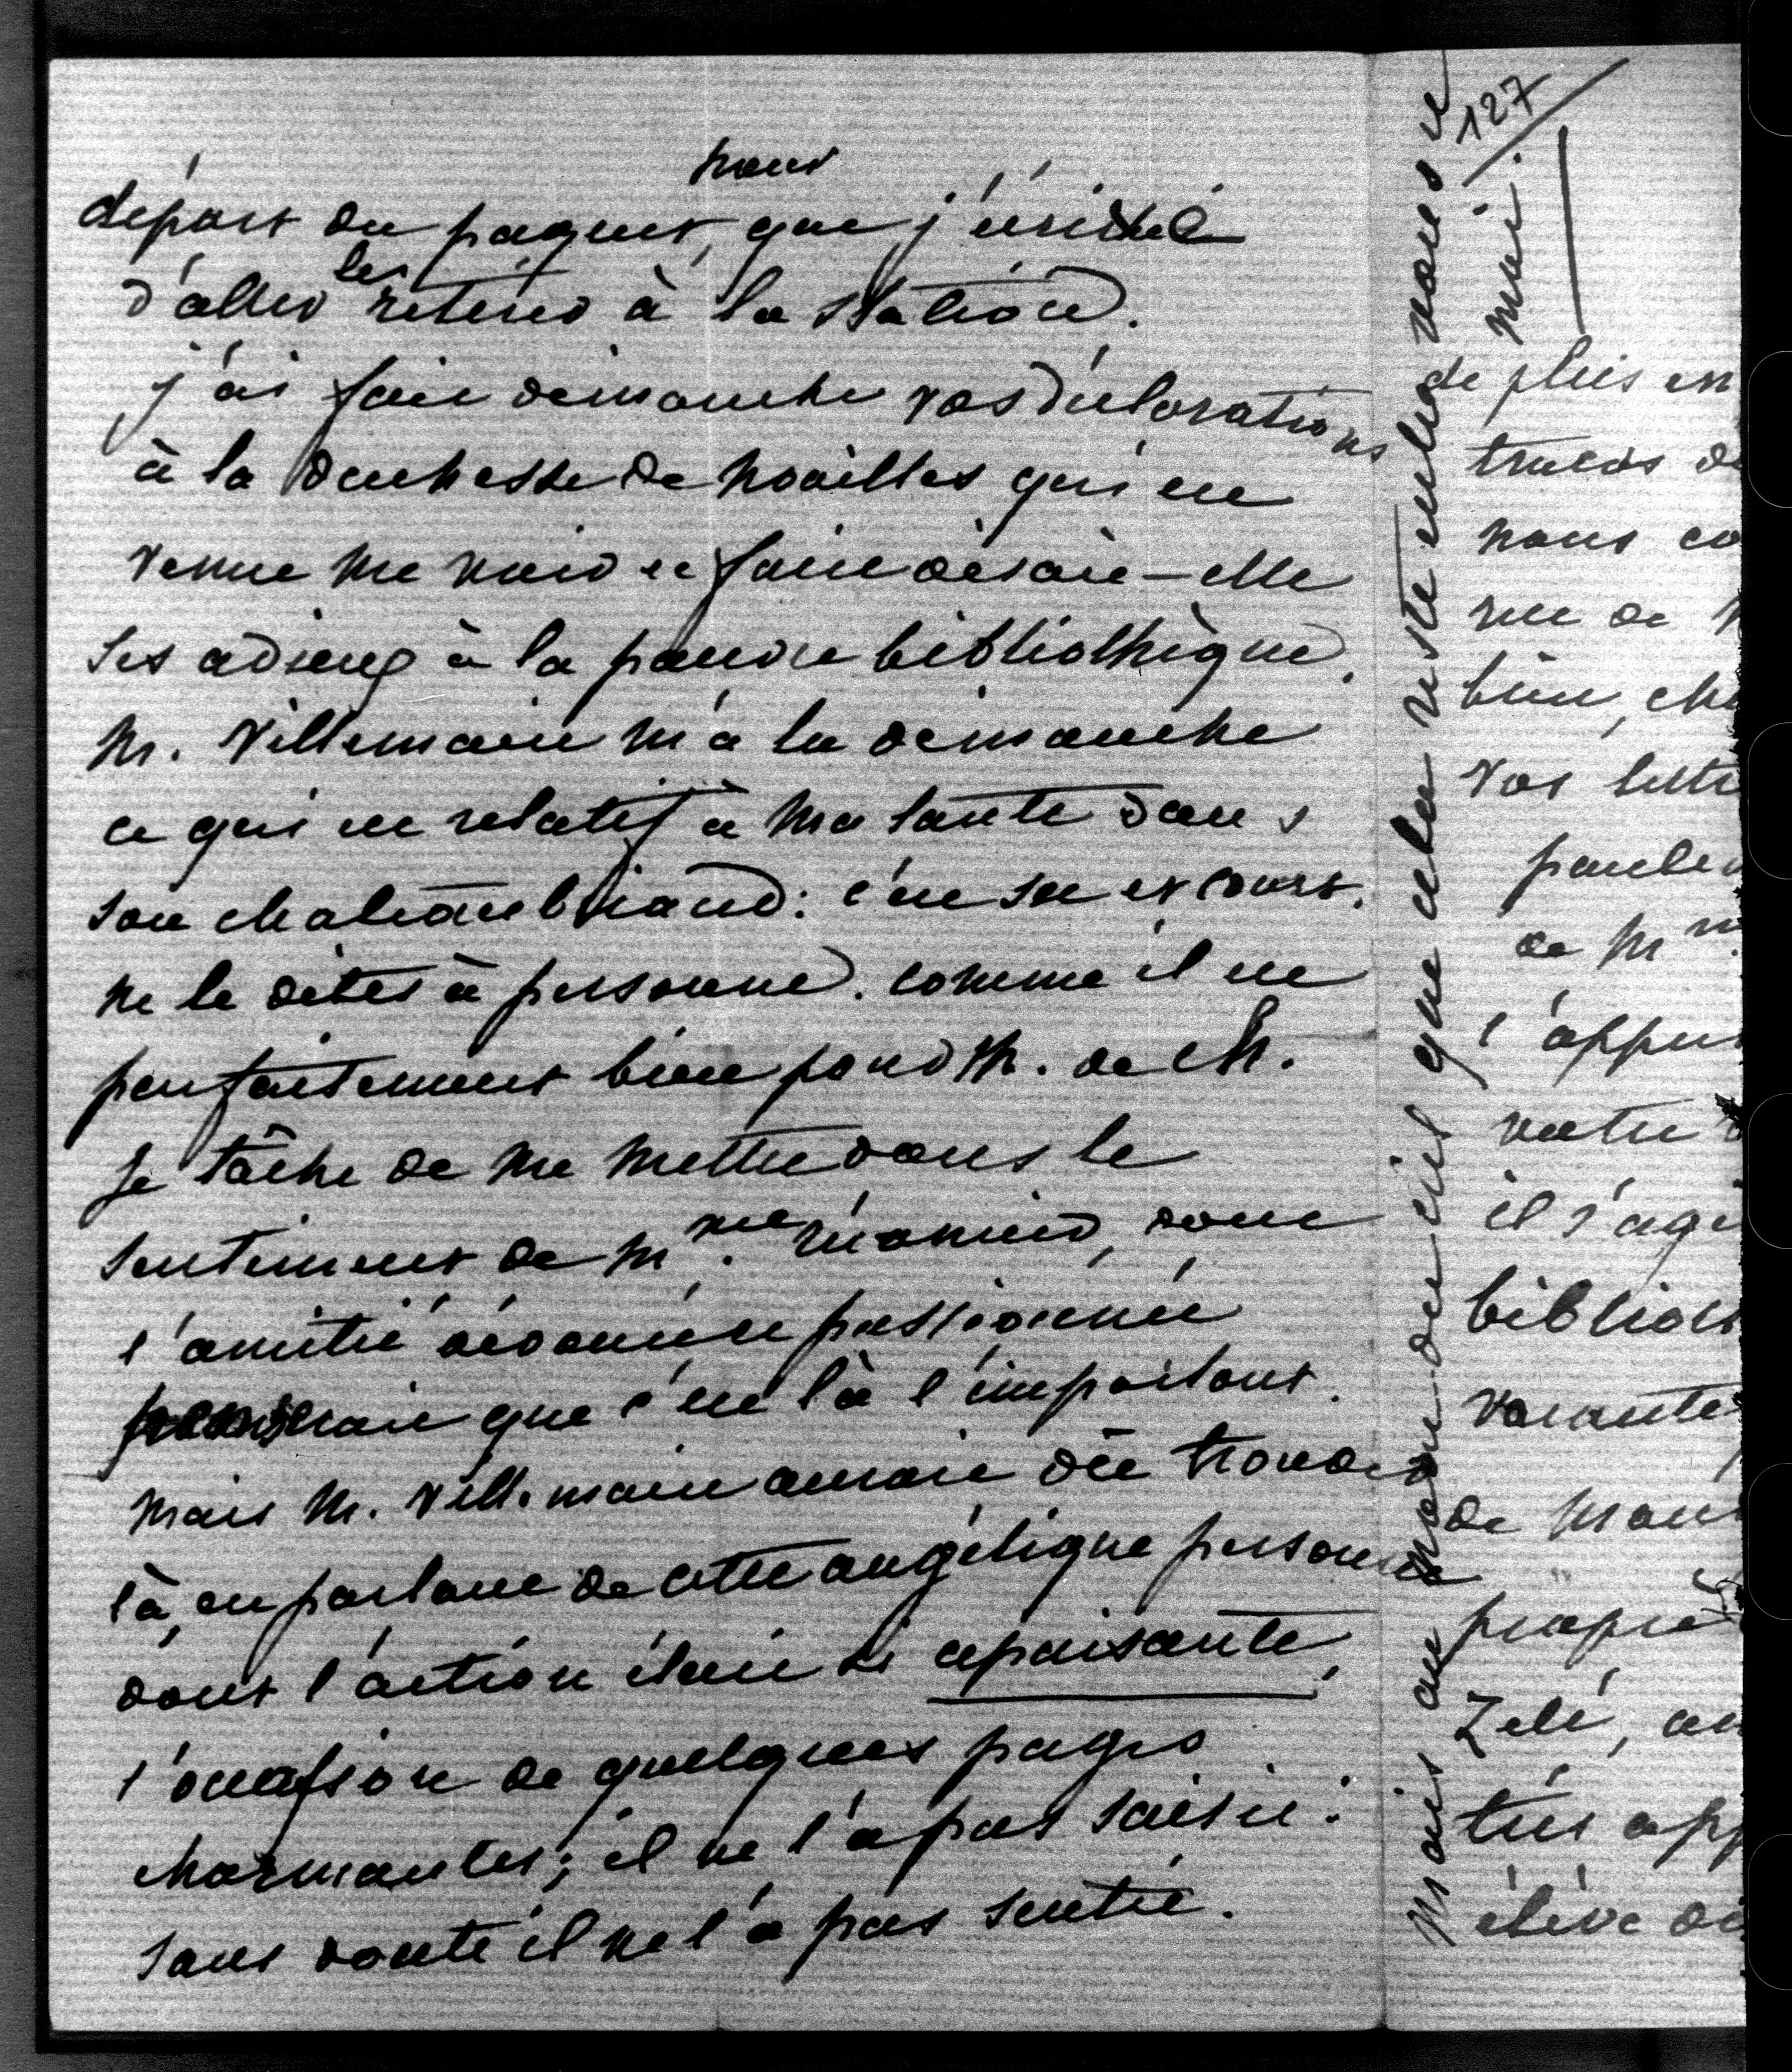 nous
départ du paquet, que j'évitasse
d'aller les retirer à la station.
j'ai fait dimanche vos déclarations
à la duchesse de Noailles qui est
venue me voir et faire disait-elle
ses adieux à la pauvre bibliothèque.
M. Villemain m'a lu dimanche
ce qui est relatif à ma tante dans
son chateaubriand: c'est sec et court.
ne le dites à personne. comme il est
parfaitement bien pour M. de Ch.
je tâche de me mettre dans le
sentiment de Mme. Récamier, dont
l'amitié dévouée et passionnée
penserait que c'est là l'important.
mais M. Villemain aurait dû trouver
là, en parlant de cette angélique personne
dont l'action était si apaisante,
l'occasion de quelques pages
charmantes; il ne l'a pas saisie.
sans doute il ne l'a pas sentie.
mais au nom du ciel que cela reste entre vous et
moi.
127
de plus en
nous
rue de
bien, ch
vos lettr
de Mm
l'appu
votre
il s'agi
biblioth
vacante
de
propre
Zélé, au
très app
élève de